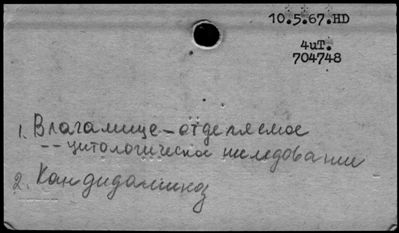 10.5.67.HD
4uT.
704748
1. Влагалище – отделяемое
-- цитологическое исследование
2. Кандидамикоз